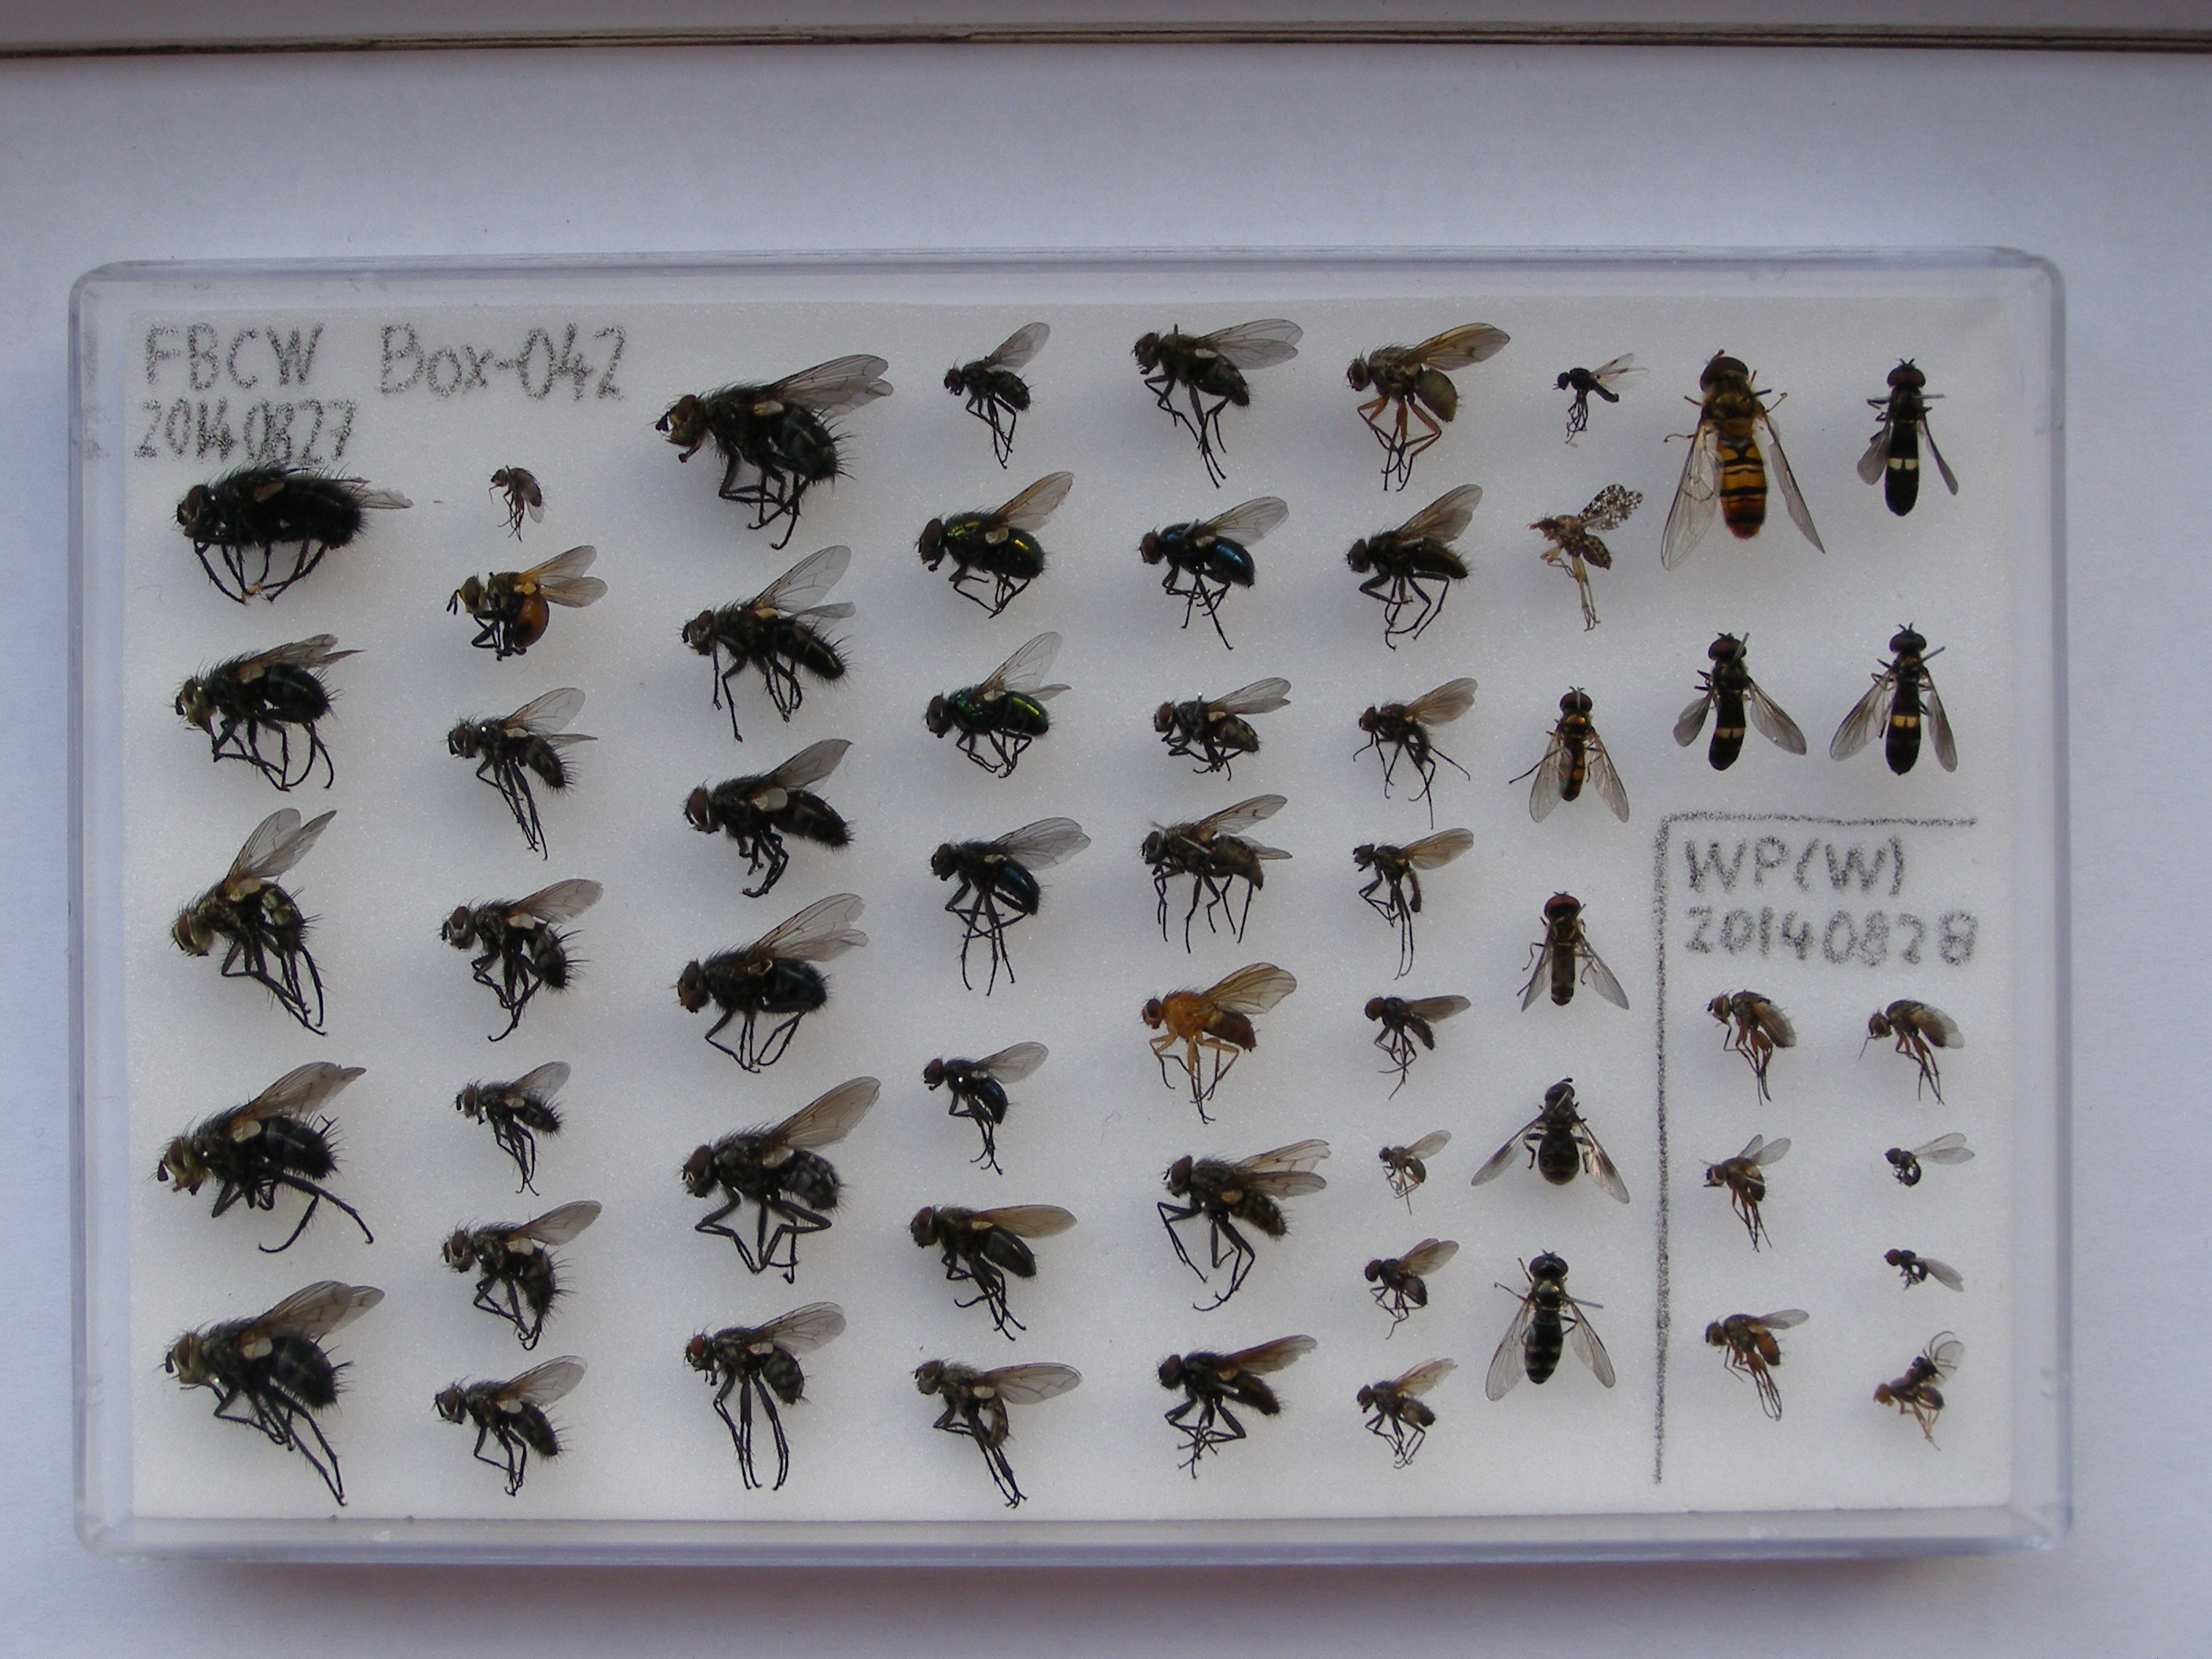 FBCW Box-042
20140827
WP(W)
20140828